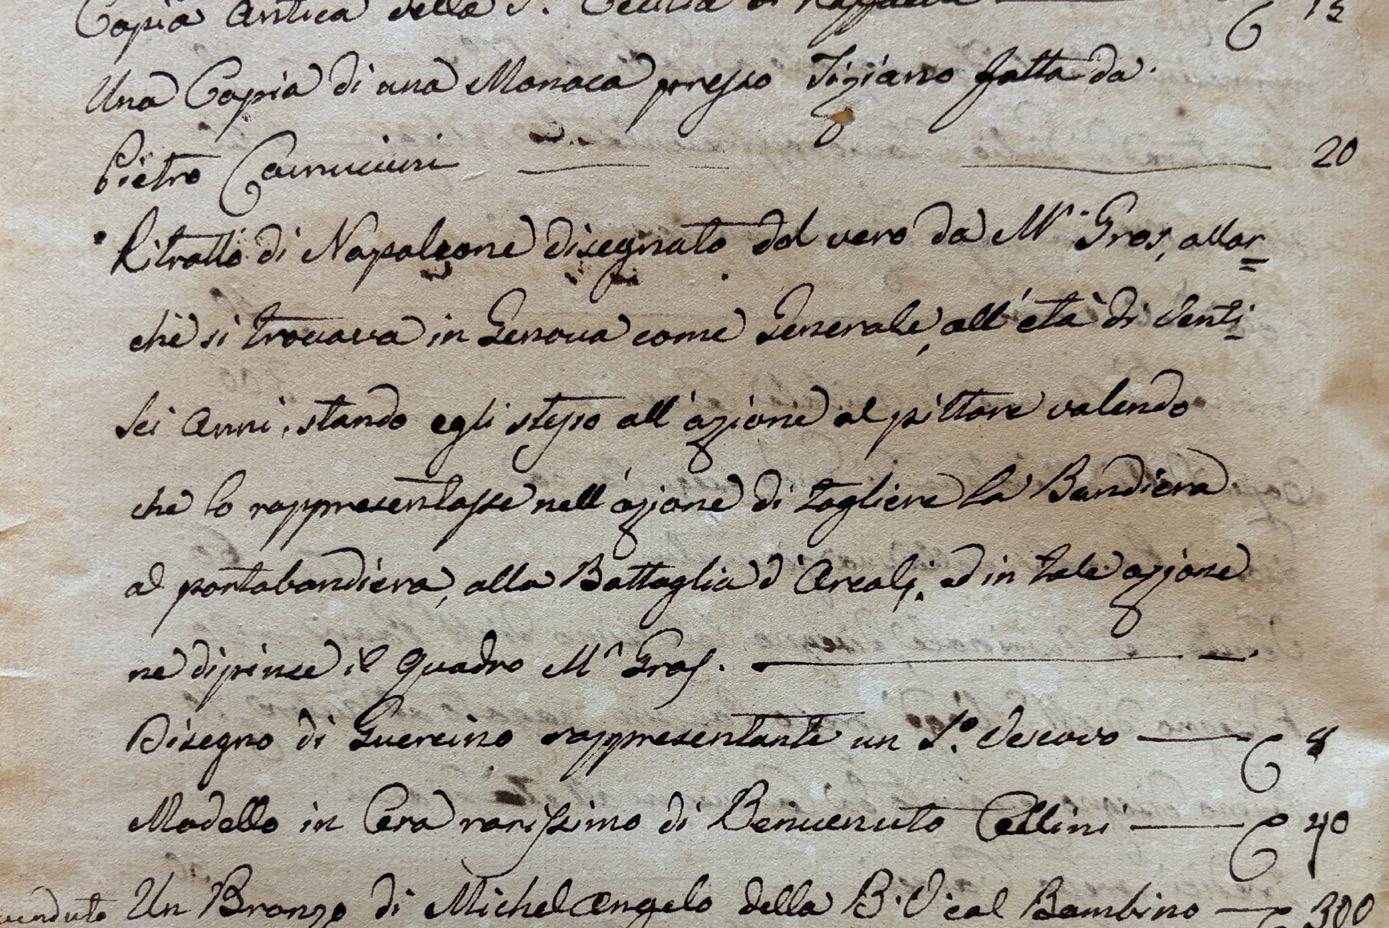 Copia Antica della S. Cecilia di Raffaello 15
Una Copia di una Monaca presso Tiziano fatta da
Pietro Camuccini 20
Ritratto di Napoleone disegnato dal vero da Mr Gros, allor=
chè si trovava in Genova come Generale, all'età di Venti
Sei Anni, stando egli stesso all'azione al pittore volendo
che lo rappresentasse nell'azione di togliere la Bandiera
al portabandiera, alla Battaglia d' Arcali, ed in tale azione
ne dipinse il Quadro Mr Gros.
Disegno di Guercino rappresentante un So. Vescovo 8
Modello in Cera rarissimo di Benvenuto Cellini 40
venduto Un Bronzo di Michel Angelo della B. V. col Bambino 300